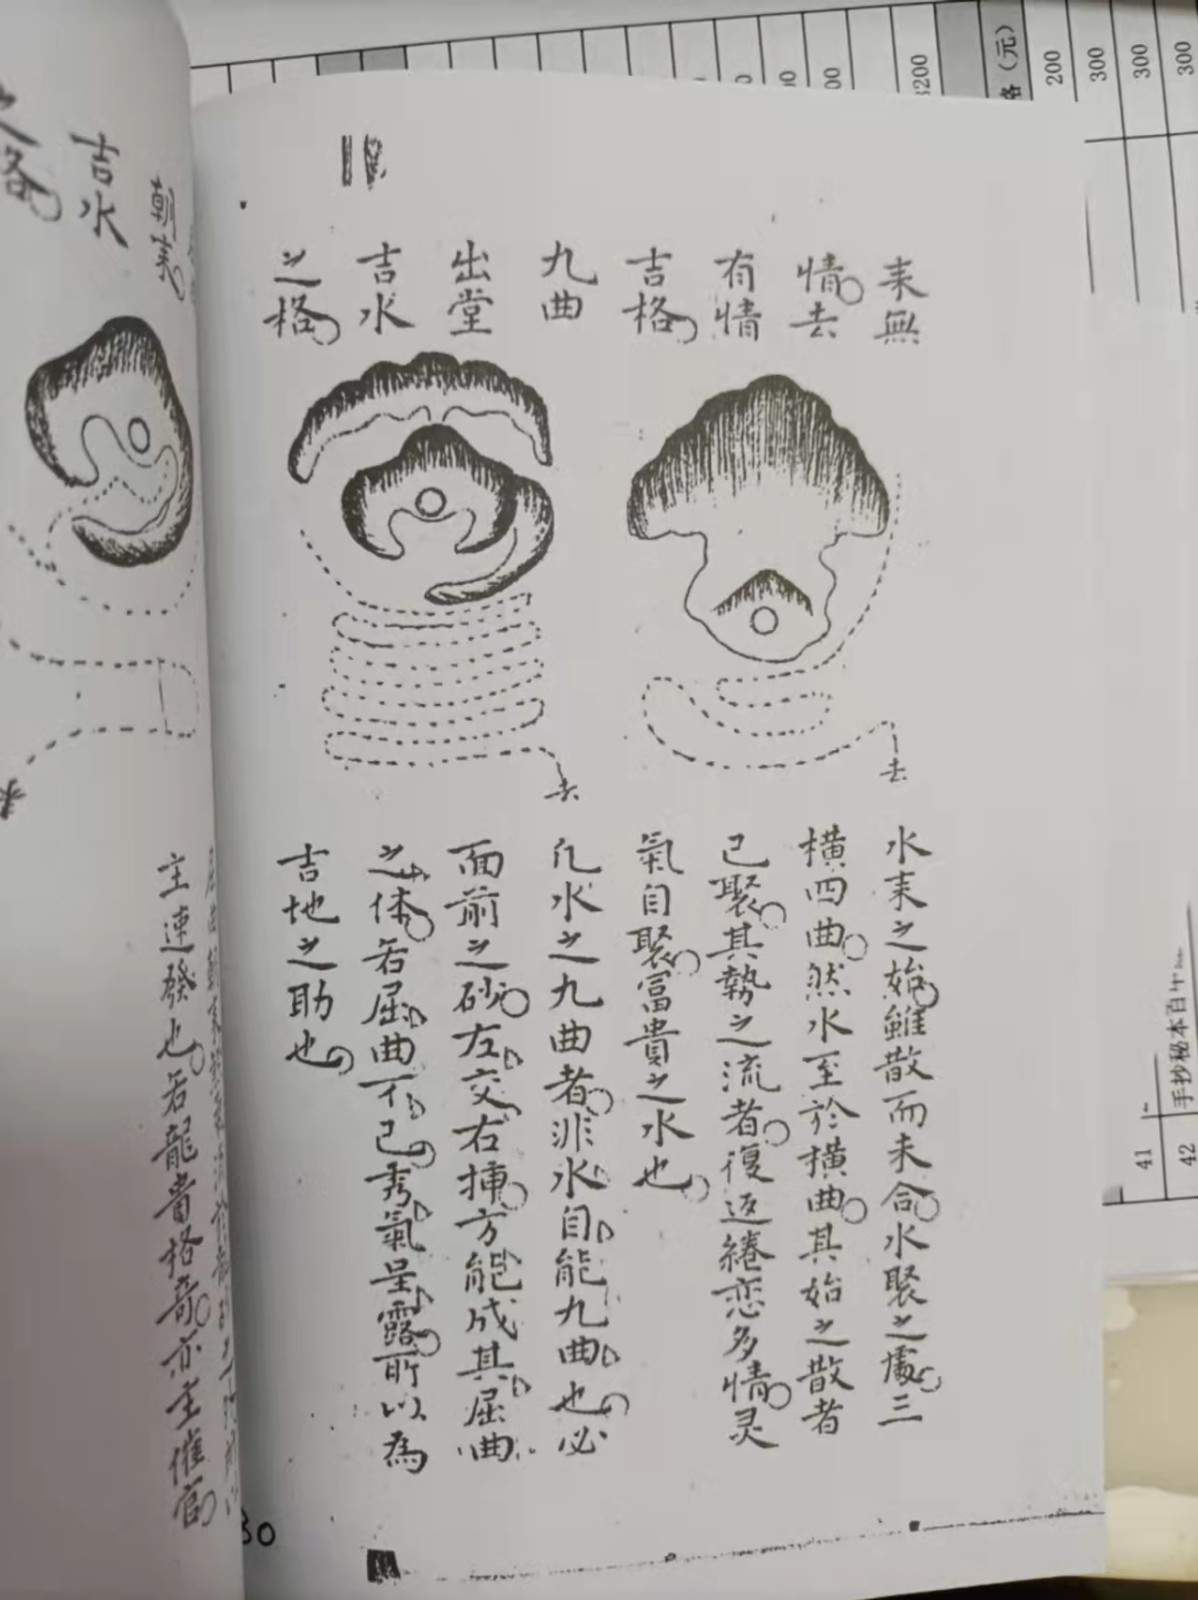 来無
情去
有情
吉格
九曲
出堂
吉水
之格
去
去
水来之始雖散而未合水聚之處三
横四曲然水至於横曲其始之散者
已聚其勢之流者復返綣恋多情灵
氣自聚富貴之水也
凡水之九曲者非水自能九曲也必
面前之砂左交右揷方能成其屈曲
之体若屈曲不已秀氣呈露所以為
吉地之助也
朝来
吉水
格
来
主速發也若龍貴格奇亦主催官
30
格（元）
200
300
300
300
3200
41
42
手抄秘本百年